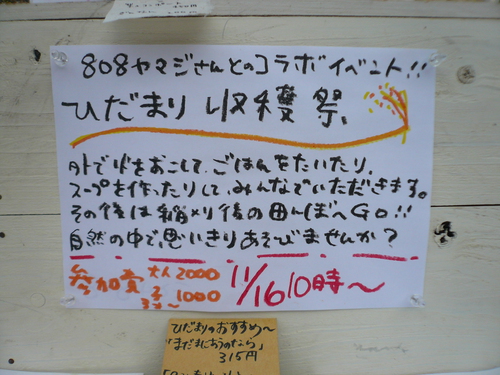 808ヤマジさんとのコラボイベント!!
ひだまり収穫祭、
外で火をおこして、ごはんをたいたり、
スープを作ったりして、みんなでいただきます。
その後は稲刈り後の田んぼへGO!!
自然の中で、思いきりあそびませんか?
参加費 大人2000
子ども〜1000
11/16 10時〜
ひだまりのおすすめ〜
「まだまにあうのなら」
315円